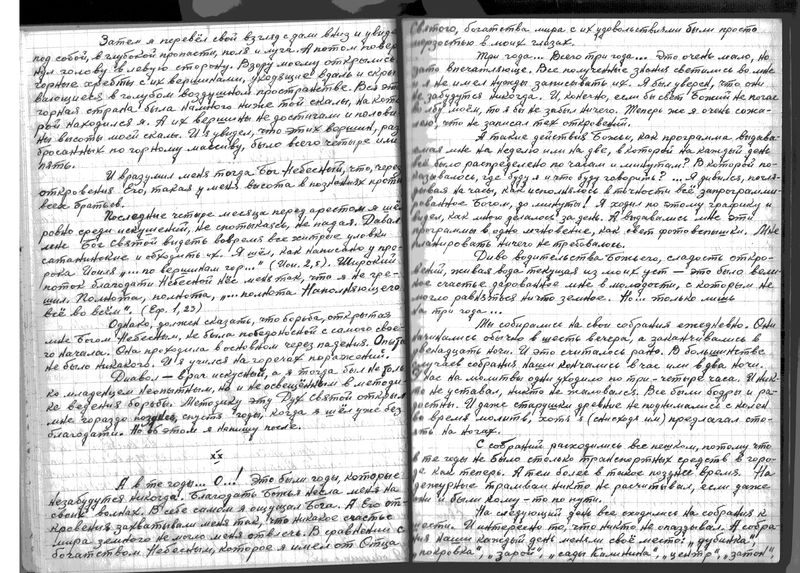 Затем я перевёл свой взгляд с дали вниз и увидел
под собой, в глубокой пропасти, поля и луга. А потом повер-
нул голову в левую сторону. Взору моему открылись
горные хребты с их вершинами, уходящие вдаль и скры-
вающиеся в голубом воздушном пространстве. Вся эта
горная страна была намного ниже той скалы, на кото-
рой находился я. А их вершины не достигали и полови-
ны высоты моей скалы. И я увидел, что этих вершин, раз-
бросанных по горному массиву, было всего четыре или
пять.
И вразумил меня тогда Бог Небесный, что, через
откровения Его, такая у меня высота в познаниях против
всех братьев.
Последние четыре месяца перед арестом я шёл
ровно среди искушений, не спотыкаясь, не падая. Давал
мне Бог Святой видеть вовремя все хитрые уловки
сатанинские и обходить их. Я шёл, как написано у про-
рока Иоиля „... по вершинам гор..." (Иоил. 2, 5). Широкий
поток благодати Небесной нёс меня так, что я не гре-
шил. Полнота, полнота, „... полнота Наполняющего
всё во всём". (Еф. 1, 23)
Однако, должен сказать, что борьба, открытая
мне Богом Небесным, не была победоносной с самого свое-
го начала. Она проходила в основном через падения. Опыта
не было никакого. И я учился на горечах поражений.
Диавол — враг искусный, а я тогда был не толь-
ко младенцем неопытным, но и не освещённым в методи-
ке ведения борьбы. Методику эту Дух Святой открыл
мне гораздо позднее, спустя годы, когда я шёл уже без
благодати. Но об этом я напишу после.
хх
А в те годы... О...! Это были годы, которые
незабудутся никогда. Благодать Божья несла меня на
своих волнах. В себе самом я ощущал Бога. А Его от-
кровения захватывали меня так, что никакое счастье
мира земного не могло меня отвлечь. В сравнении с
богатством Небесным, которое я имел от Отца
Святого, богатства мира с их удовольствиями были просто
мерзостью в моих глазах.
Три года... Всего три года... Это очень мало, но
зато впечатляюще. Все полученные знания светились во мне
и я не имел нужды записывать их. Я был уверен, что они
не забудутся никогда. И, конечно, если бы свет Божий не погас
в моём, то я бы не забыл ничего. Теперь же я очень сожа-
лею, что не записал тех откровений.
А такие действия Божьи, как программа выдава-
емая мне на неделю или на две, в которой на каждый день
всё было распределено по часам и минутам? В которой по-
казывалось, где буду и что буду говорить? ... Я дивился, погля-
дывая на часы, как исполнялось в точности всё запрограмми-
рованное Богом, до минуты! Я ходил по этому графику и
видел, как много делалось за день. А выдавались мне эти
программы в одно мгновение, как свет фотовспышки. Мне
планировать ничего не требовалось.
Диво водительства Божьего, сладость откро-
вений, живая вода текущая из моих уст — это было вели-
кое счастье дарованное мне в молодости, с которым не
могло равняться ничто земное. Но... только лишь
на три года...
Мы собирались на свои собрания ежедневно. Они
начинались обычно в шесть вечера, а заканчивались в
двенадцать ночи. И это считалось рано. В большинстве
случаев собрания наши кончались в час или в два ночи.
У нас на молитвы одни уходило по три-четыре часа. И ник-
то не уставал, никто не жаловался. Все были бодры и ра-
достны. И даже старушки древние не поднимались с колен
во время молитв, хотя я (снисходя им) предлагал сто-
ять на ногах.
С собраний расходились все пешком, потому что
в те годы не было столько транспортных средств в горо-
де как теперь. А тем более в такое позднее время. На
дежурные трамваи никто не расчитывал, если даже
они и были кому-то по пути.
На следующий день все сходились на собрания к
шести. И интересно то, что никто не опаздывал. А собра-
ния наши каждый день меняли своё место: „дубинка",
„покровка", „зарой", „сады Калинина", „центр", „затон"